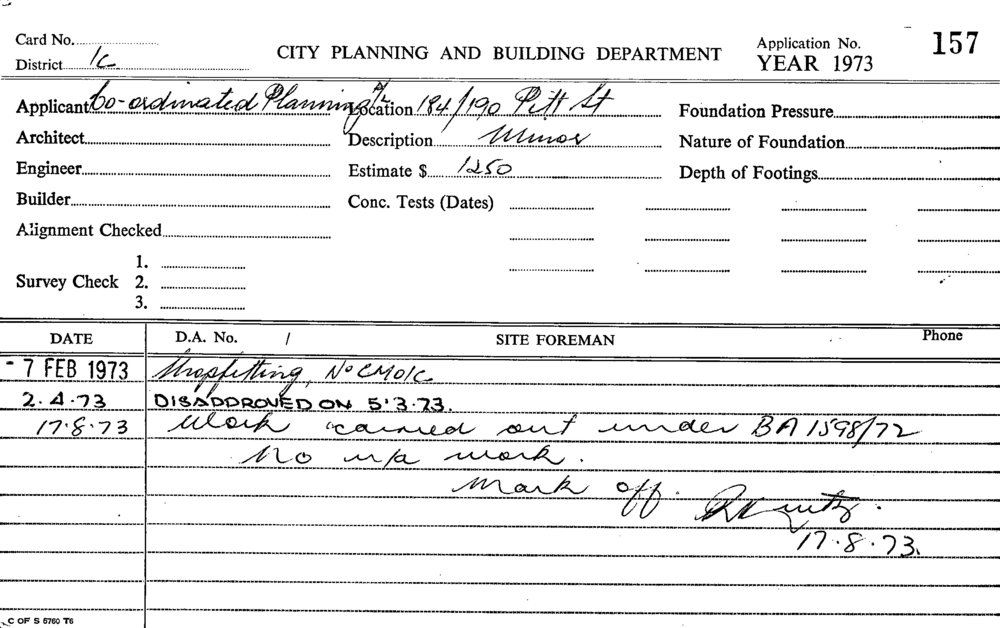 Card No.
District 1c
CITY PLANNING AND BUILDING DEPARTMENT
Application No. 157
YEAR 1973
Applicant Co-ordinated Planning P/L Location 184/190 Pitt St Foundation Pressure
Architect Description Minor Nature of Foundation
Engineer Estimate $ 1250 Depth of Footings
Builder Conc. Tests (Dates)
Alignment Checked
Survey Check 1.
2.
3.
DATE D.A. No. / SITE FOREMAN Phone
- 7 FEB 1973 Shopfitting, No
2.4.73 DISAPPROVED ON 5.3.73.
17.8.73 Work carried out under BA 1598/72
No work.
Mark off.
17.8.73.
C OF S 5760 T6